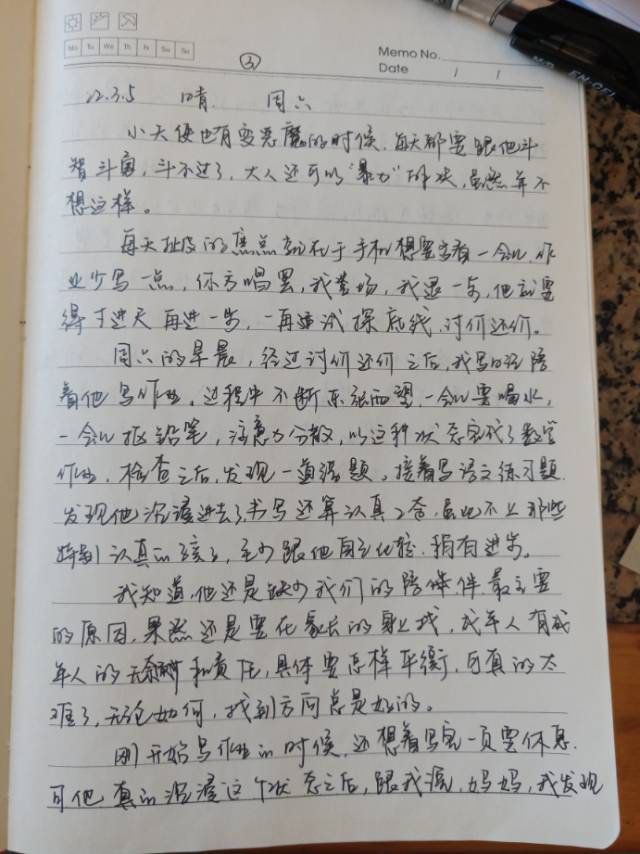 Mo Tu We Th Fr Sa Su
③
Memo No.
Date / /
22.3.5 晴 周六
小天使也有变恶魔的时候，每天都要跟他斗
智斗勇，斗不过了，大人还可以“暴力”解决，虽然并不
想这样。
每天扯皮的焦点就在于手机想要多看一会儿，作
业少写一点，你方唱罢，我登场，我退一步，他就要
得寸进尺再进一步，一再试探底线，讨价还价。
周六的早晨，经过讨价还价之后，我哥陪
着他写作业，过程中不断东张西望，一会儿要喝水，
一会儿抠铅笔，注意力分散，以这种状态完成了数学
作业，检查之后，发现一道错题。接着写语文练习题，
发现他沉浸进去了，书写还算认真工整，虽比不上那些
特别认真的孩子，至少跟他自己比较，稍有进步。
我知道，他还是缺少我们的陪伴，最主要
的原因，果然还是要在家长的身上找，成年人有成
年人的无奈和责任，具体要怎样平衡，可真的太
难了，无论如何，找到方向总是好的。
刚开始写作业的时候，还想着写完一页要休息，
可他真的沉浸这个状态之后，跟我说，妈妈，我发现